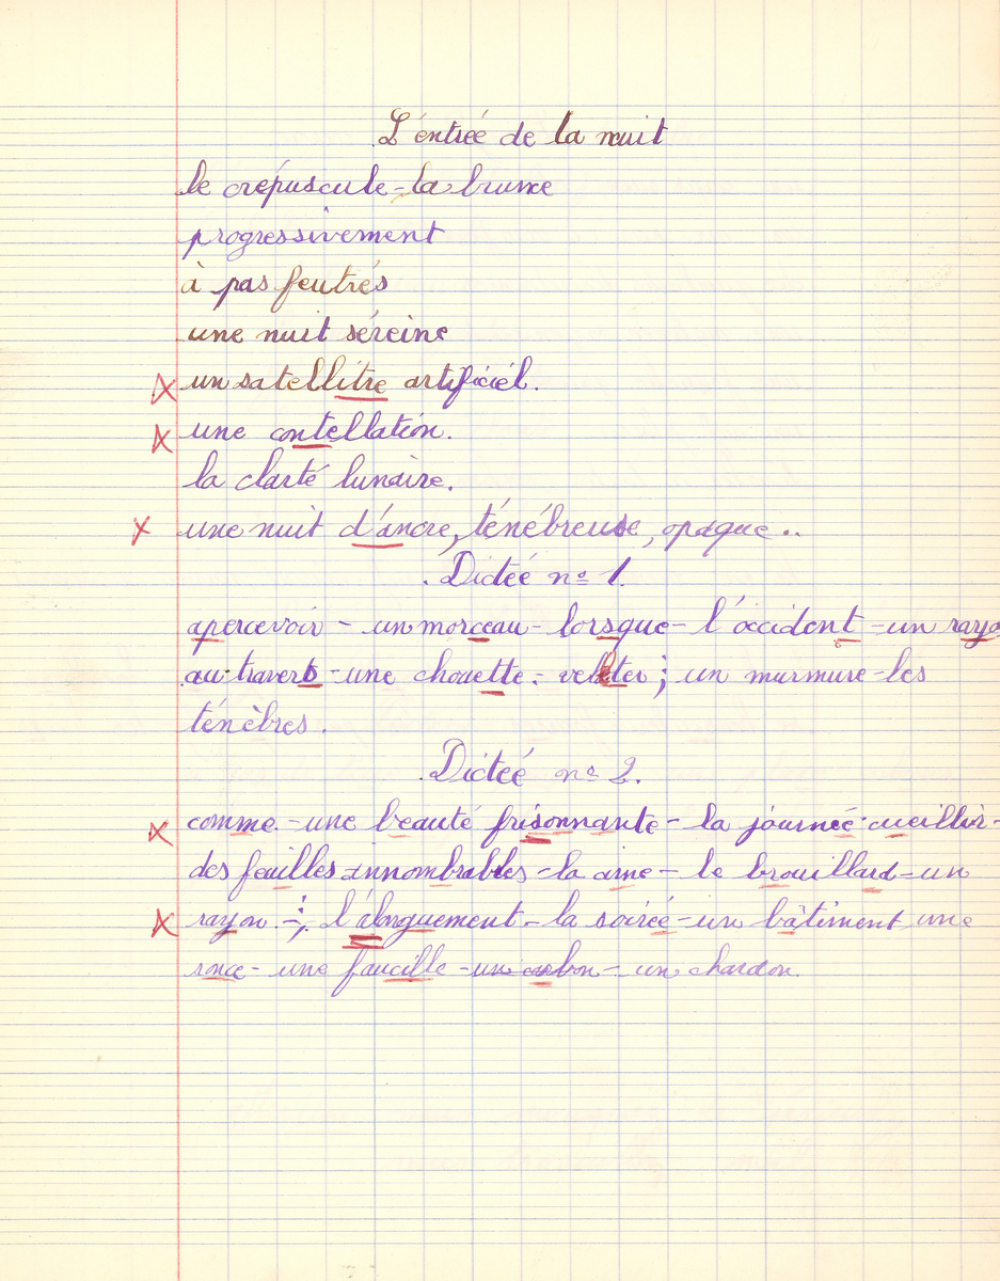 L'entrée de la nuit
le crépuscule - la brume
progressivement
à pas feutrés
une nuit séreine
un satellitre artificiel.
une contellation.
la clarté lunaire.
une nuit d'ancre, ténébreuse, opaque..
Dictée n° 1.
apercevoir - un morceau - lorsque - l'occident - un rayo
au travers - une chouette - ; un murmure - les
ténèbres.
Dictée n° 2.
comme - une beauté frisonnante - la journée - cueillir -
des feuilles innombrables - la cime - le brouillard - un
rayon - l'alonguement - la soirée - un bâtiment une
ronce - une faucille - un - un chardon.